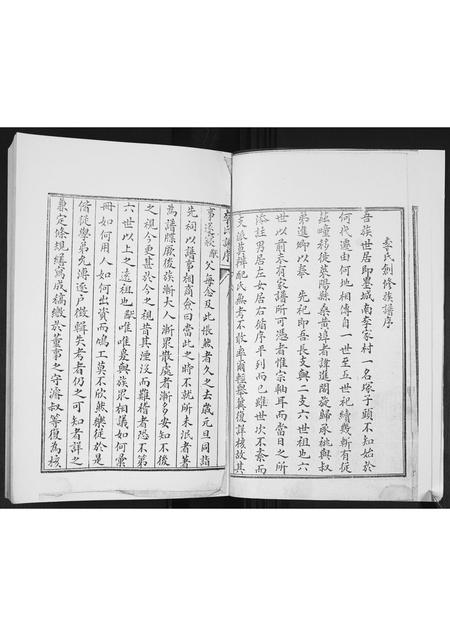 李氏創修族譜序
吾族世居即墨城南李家村一名塚子頭不知始於
何代遷由何地相傳自一世至五世祀續幾斬有從
疃移徙萊陽縣桑黃埠者諱進閣旋歸承祧與叔
弟進卿以奉先祀即吾長支與二支六世祖也六
世以前未有家譜所可憑者惟宗軸耳而當日之所
添註男居左女居右循序平列而已雖世次不紊而
支派莫辨配氏無考不敢率爾輕舉冀後詳核故其
事遂寢猷父每念及此悵然者久之去歲元旦同詣
先祠以譜事相商僉曰當此之時不就所未泯者著
為譜牒厥後族漸大人漸眾散處者漸多安知不後
之視今更甚於今之視昔其湮沒而難稽者恐不第
六世以上之遠祖也猷唯唯爰與族眾相議如何彙
冊如何用人如何出資而鳩工莫不欣然樂從於是
偕從學弟允溥逐戶徵輯失考者仍之可知者詳之
兼定條規繕寫成稿繳於董事之守濬叔等復為核